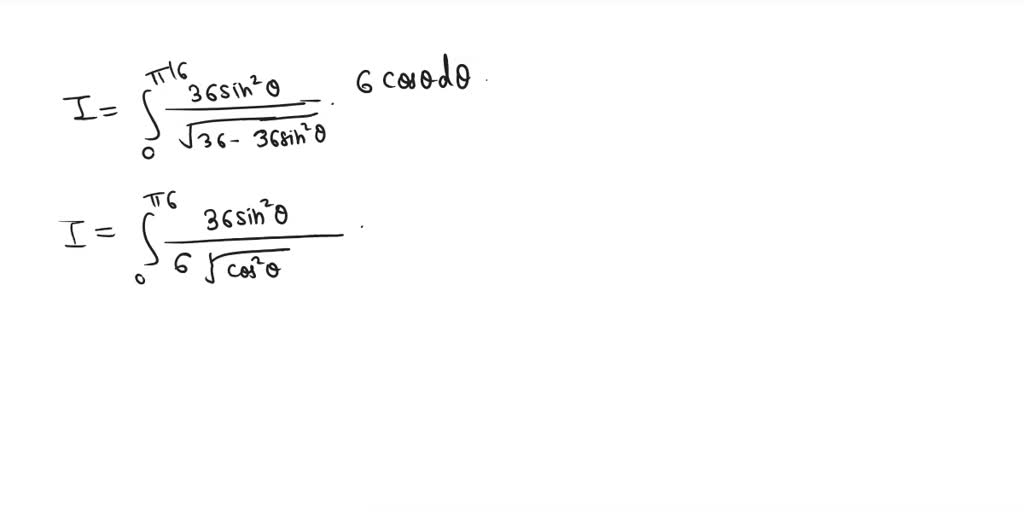 I = ∫₀^{π/6} 36sin²θ / √36 - 36sin²θ · 6 cosθdθ .
I = ∫₀^{π6} 36sin²θ / 6 √cos²θ ·